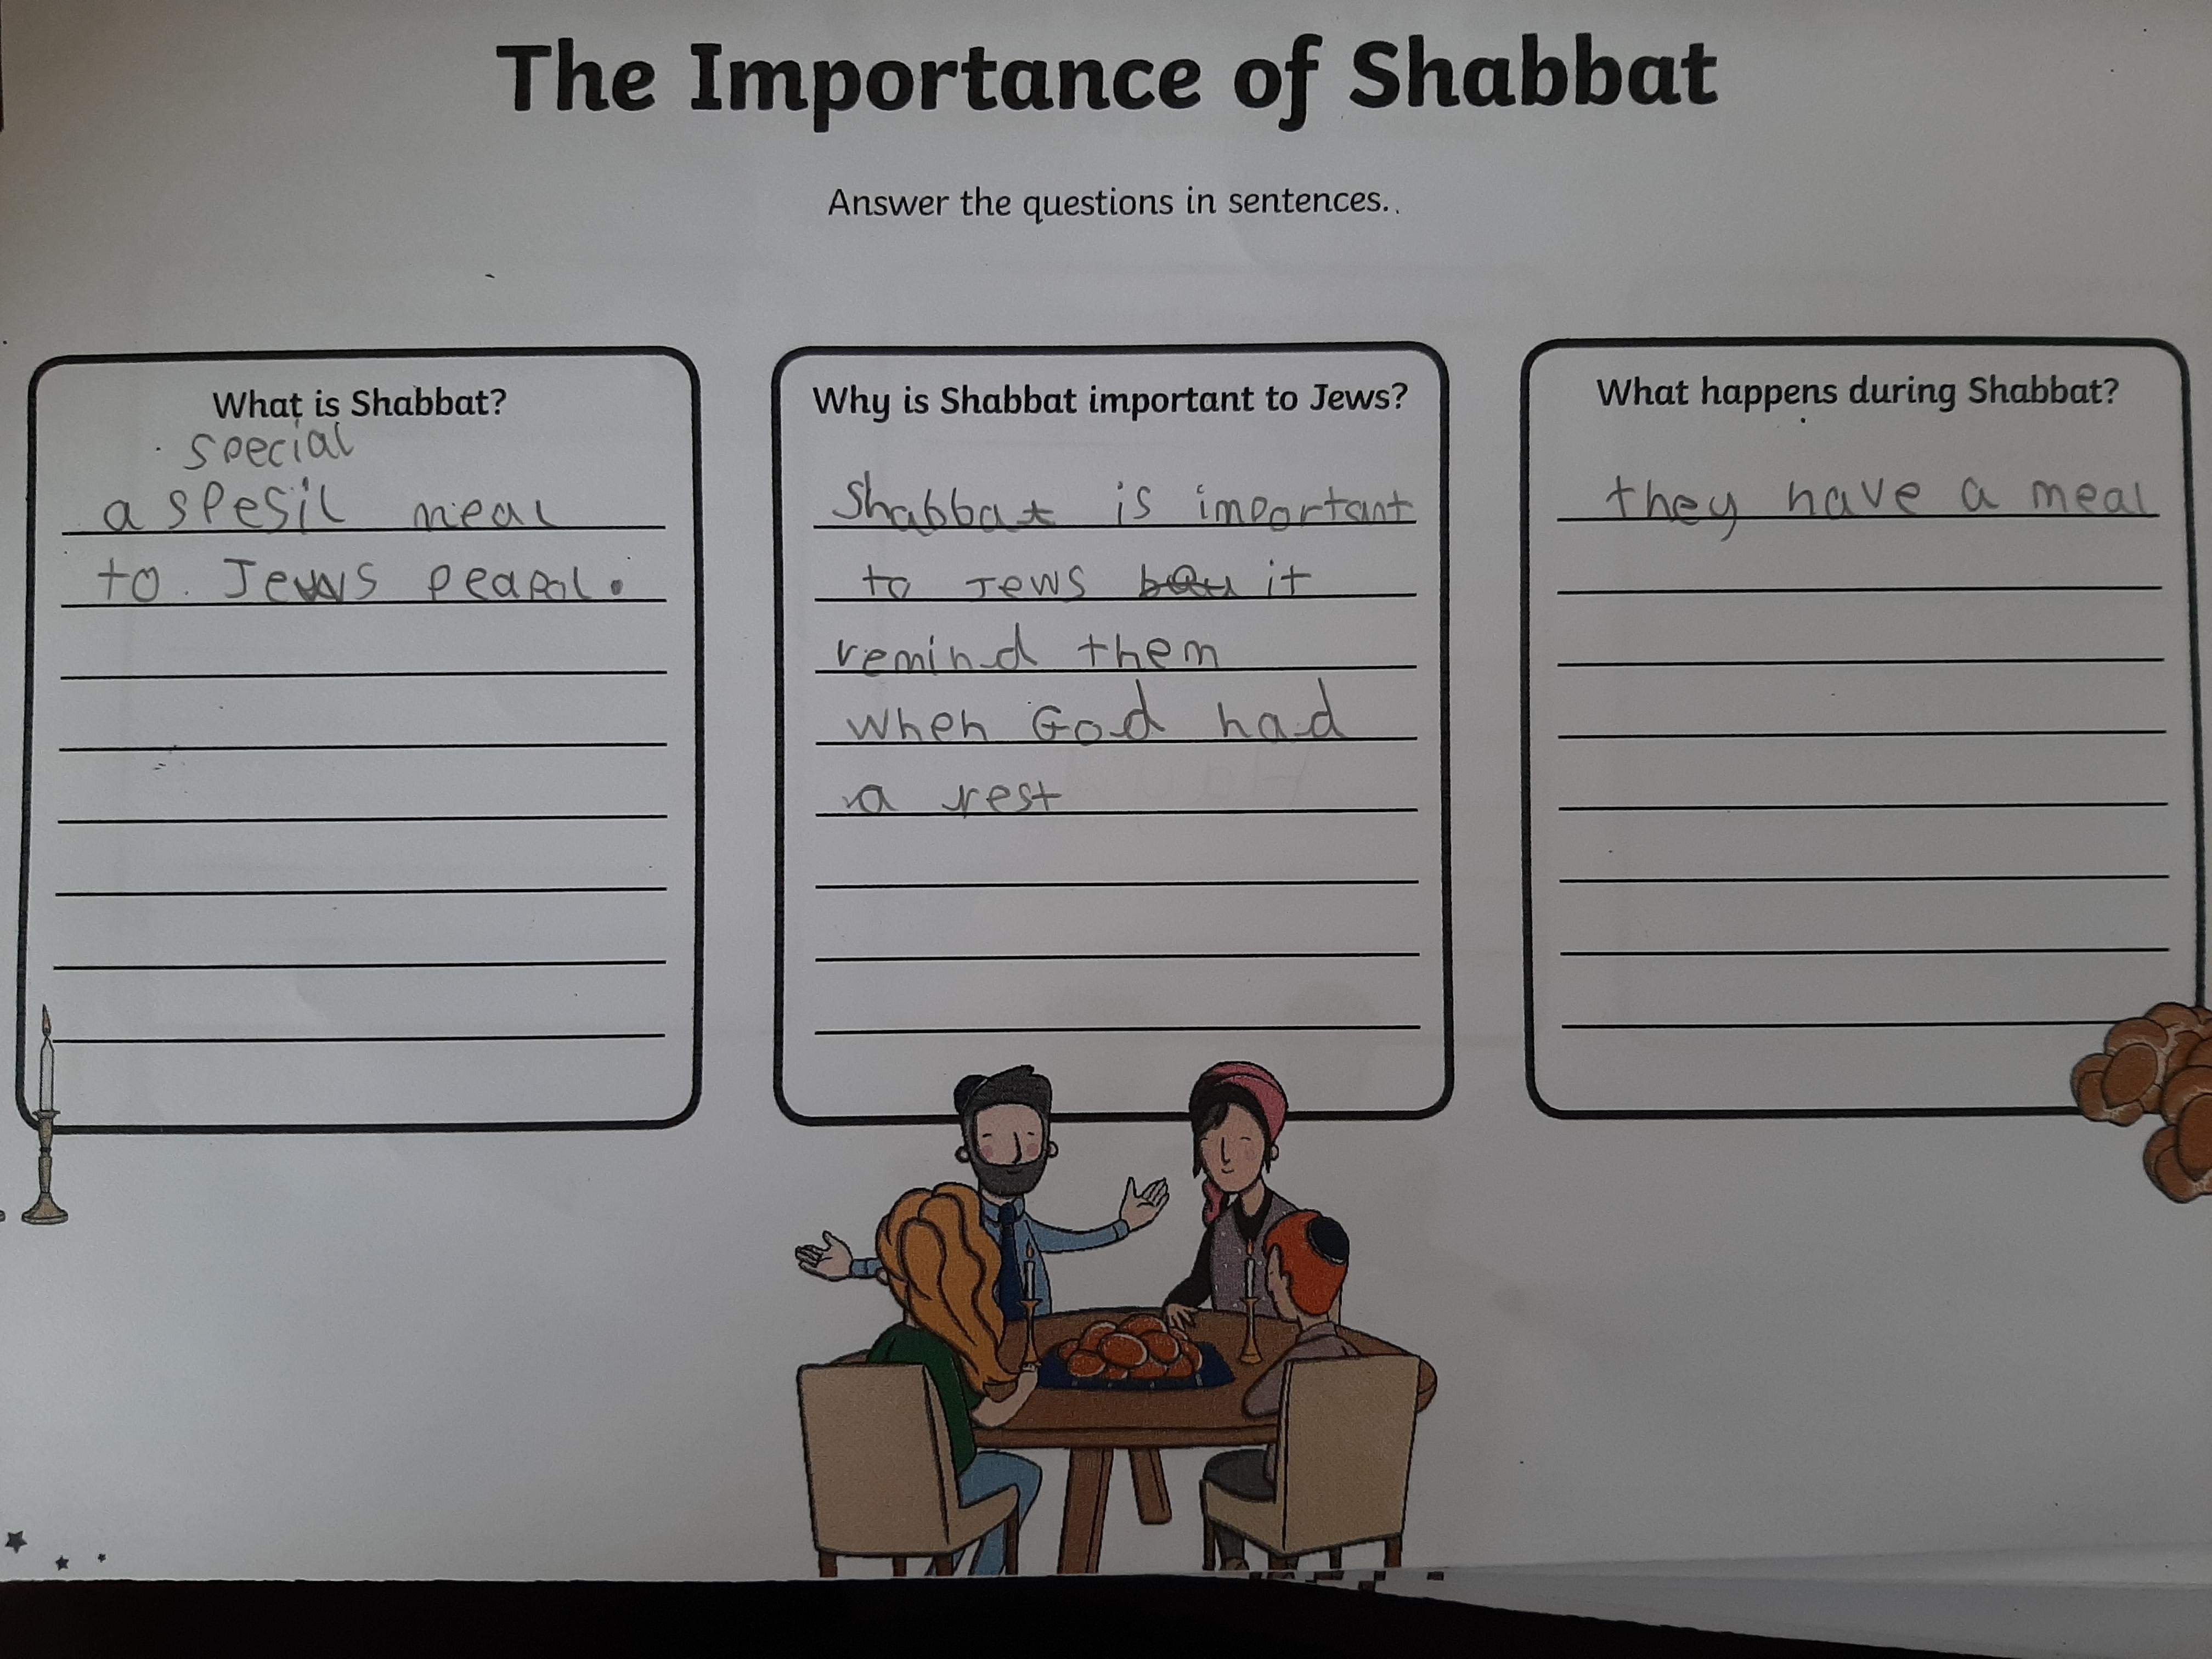 The Importance of Shabbat
Answer the questions in sentences..
What is Shabbat?
special
a spesil meal
to Jews peapol.
Why is Shabbat important to Jews?
Shabbat is important
to Jews it
remind them
when God had
a rest
What happens during Shabbat?
they have a meal